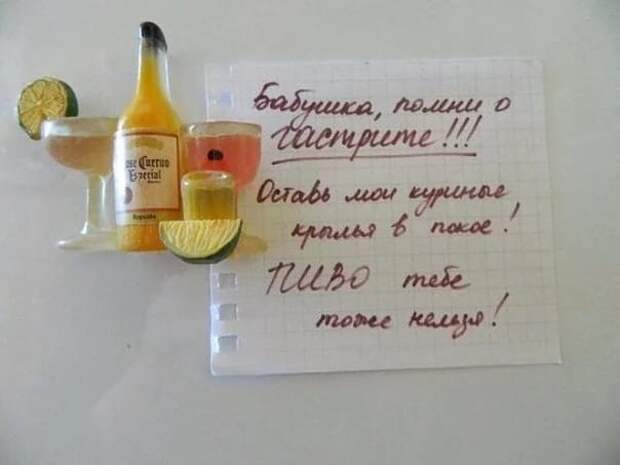 Jose Cuervo
Especial
Бабушка, помни о
гастрите!!!
Оставь мои куриные
крылья в покое!
ПИВО тебе
тоже нельзя!